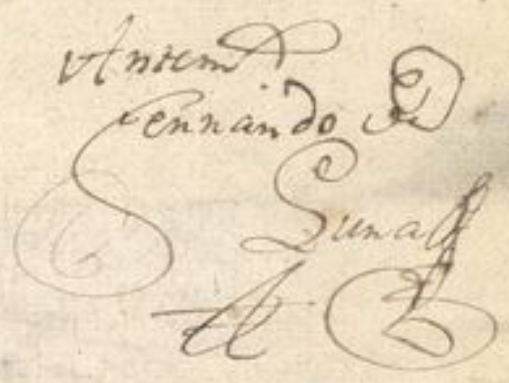 Antem
Fernando de
Luna